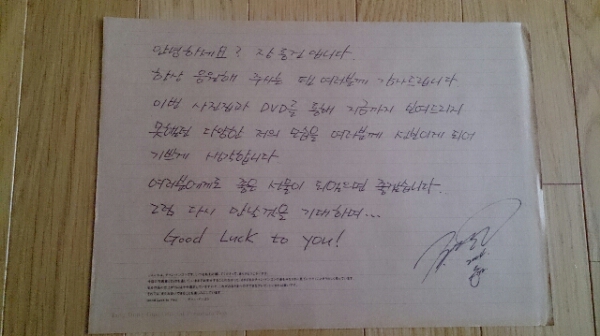 안녕하세요? 장 동건 입니다.
항상 응원해 주시는 팬 여러분께 감사드립니다
이번 사진집과 DVD를 통해 지금까지 보여드리지
못했던 다양한 저의 모습을 여러분께 선보이게 되어
기쁘게 생각합니다
여러분에게도 좋은 선물이 되었으면 좋겠습니다.
그럼 다시 만날것을 기대하며...
Good Luck to you!